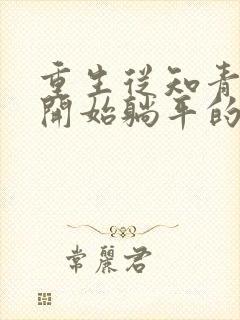 重生從知青
開始躺平的
常麗君